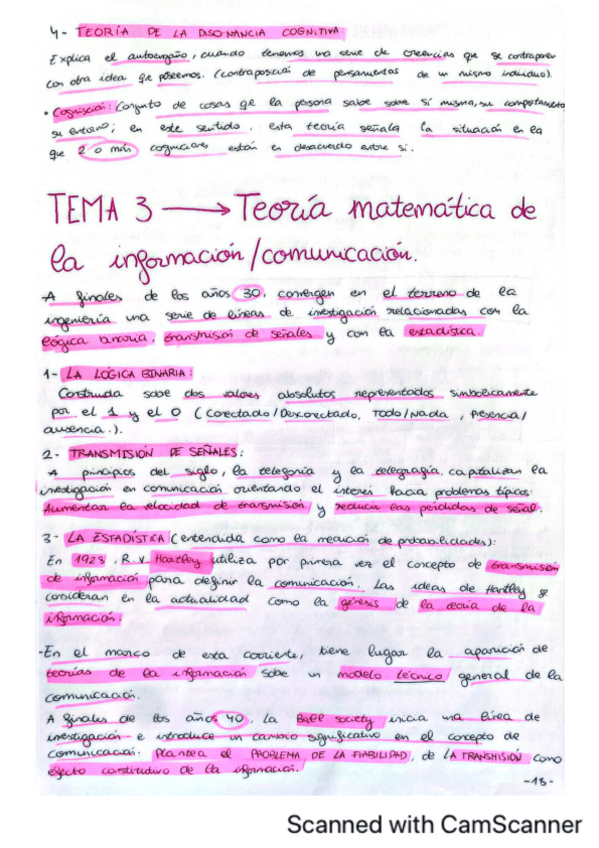 4- TEORÍA DE LA DISONANCIA COGNITIVA:
Explica el autoengaño, cuando tenemos una serie de creencias que se contraponen
con otra idea que poseemos. (contraposición de pensamientos de un mismo individuo).
• Cognición: Conjunto de cosas qe la persona sabe sobre sí misma, su comportamiento
su entorno; en este sentido, esta teoría señala la situación en la
que 2 o más cogniciones están en desacuerdo entre sí.
TEMA 3 → Teoría matemática de
la información/comunicación.
A finales de los años 30, convergen en el terreno de la
ingeniería una serie de líneas de investigación relacionadas con la
lógica binaria, transmisión de señales y con la estadística.
1- LA LÓGICA BINARIA:
Construida sobre dos valores absolutos representados simbólicamente
por el 1 y el 0 (Conectado/Desconectado, Todo/Nada, Presencia/
ausencia.).
2- TRANSMISIÓN DE SEÑALES:
A principios del siglo, la telefonía y la telegrafía, capitalizan la
investigación en comunicación orientando el interés hacia problemas típicos:
Aumentar la velocidad de transmisión y reducir las pérdidas de señal.
3- LA ESTADÍSTICA (entendida como la medición de probabilidades):
En 1923, R.V. Hartley utiliza por primera vez el concepto de transmisión
de información para definir la comunicación. Las ideas de Hartley se
consideran en la actualidad como la génesis de la teoría de la
información.
-En el marco de esta corriente, tiene lugar la aparición de
teorías de la información sobe un modelo técnico general de la
comunicación.
A finales de los años 40, la Bell society inicia una línea de
investigación e introduce un cambio significativo en el concepto de
comunicación: Plantea el PROBLEMA DE LA FIABILIDAD, de LA TRANSMISIÓN como
efecto constitutivo de la información.
-15-
Scanned with CamScanner